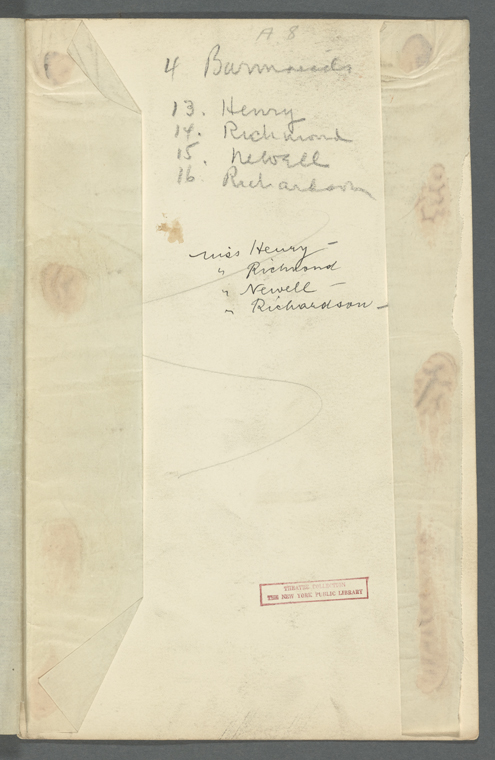 A 8
4 Barmaids
13. Henry
14. Richmond
15. Newell
16 Richardson
Miss Henry —
" Richmond
" Newell —
" Richardson —
THEATRE COLLECTION
THE NEW YORK PUBLIC LIBRARY